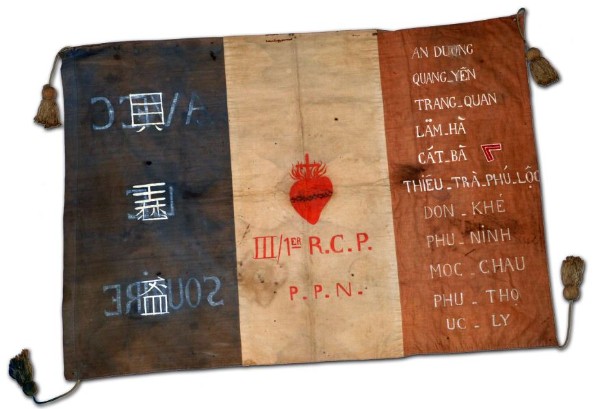 AVEC
LE
SOURIRE
III/1ER R.C.P.
P.P.N.
AN DƯƠNG
QUANG_YÊN
TRANG_QUAN
LÂM_HÀ
CÁT_BÀ
THIÊU_TRÀ_PHÚ_LỘC
DON_KHE
PHU_NINH
MOC_CHAU
PHU_THỌ
UC_LY